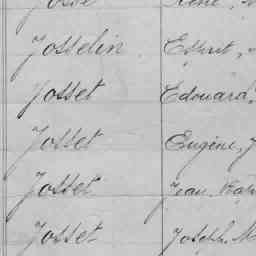 René,
Josselin Esprit,
Josset Edouard,
Josset Eugène, J
Josset Jean Bap
Josset Joseph M